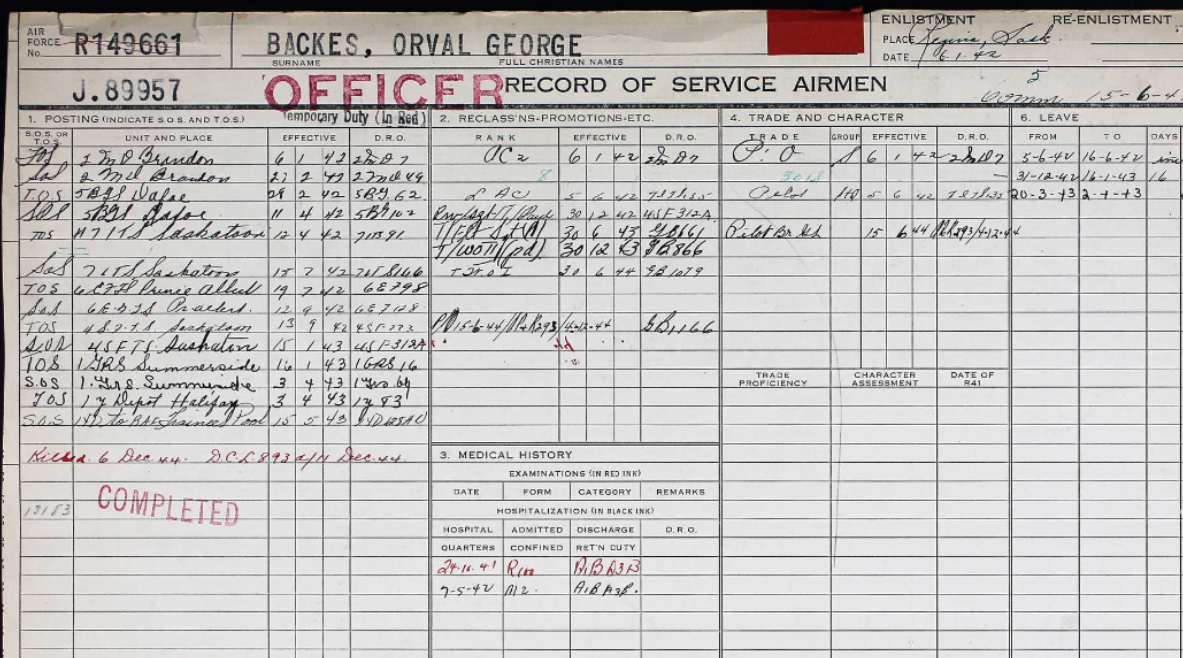 AIR FORCE No. R149661 BACKES, ORVAL GEORGE
SURNAME FULL CHRISTIAN NAMES
ENLISTMENT RE-ENLISTMENT
PLACE Regina, Sask.
DATE 6-1-42
J.89957 OFFICER RECORD OF SERVICE AIRMEN
5
Comm 15-6-4
Temporary Duty (In Red)
1. POSTING (INDICATE S.O.S. AND T.O.S.)
S.O.S. OR T.O.S. UNIT AND PLACE EFFECTIVE D.R.O.
TOS 2 M D Brandon 6 1 42 2MD7
SOS 2 M D Brandon 2 42 2MD49
T.O.S 5BGS Dafoe 28 2 42 5BG 62
SOS 5BGS Dafoe 11 4 42 5BG102
TOS 7 ITS Saskatoon 12 4 42 7ITS91
SOS 7 ITS Saskatoon 7 42
TOS 6 EFTS Prince Albert 19 7 42 6E798
SOS 6 E.F.T.S 12 9 42 6E7128
TOS 4 S.F.T.S. Saskatoon 13 9 42
S.O.S 4SFTS Saskatoon 15 1 43 4SF312A
TOS 1 GRS Summerside 16 1 43 1GRS16
S.O.S 1. GRS. Summerside 3 4 43
TOS 1 Y Depot Halifax 3 4 43 1Y 83
S.O.S 1YD to RAF Trainees Pool 15 5 43
Killed. 6 Dec. 44. D.C.L. 893 d/11 Dec. 44.
COMPLETED
13153
2. RECLASS'NS-PROMOTIONS-ETC.
RANK EFFECTIVE D.R.O.
AC2 6 1 42 2MD7
8
LAC 5 6 42
Sgt 30 12 42 4SF312A
T/Flt Sgt 30 6 43 GB661
T/WOII (pd) 30 12 43 GB866
T.W.O.I 30 6 44 GB1079
P/O 15-6-44 R293/4-12-44 GB1166
3. MEDICAL HISTORY
EXAMINATIONS (IN RED INK)
DATE FORM CATEGORY REMARKS
HOSPITALIZATION (IN BLACK INK)
HOSPITAL ADMITTED DISCHARGE D.R.O.
QUARTERS CONFINED RET'N DUTY
41 R100 A1B A3B
7-5-42 M2. A1B A3B.
4. TRADE AND CHARACTER
TRADE GROUP EFFECTIVE D.R.O.
P.O S 6 1 42 2MD7
3018
Pilot 5 6 42
Pilot 15 6 44 R293/4-12-44
TRADE PROFICIENCY CHARACTER ASSESSMENT DATE OF R41
6. LEAVE
FROM TO DAYS
5-6-42 16-6-42 inc
31-12-42 16-1-43 16
20-3-43 2-4-43